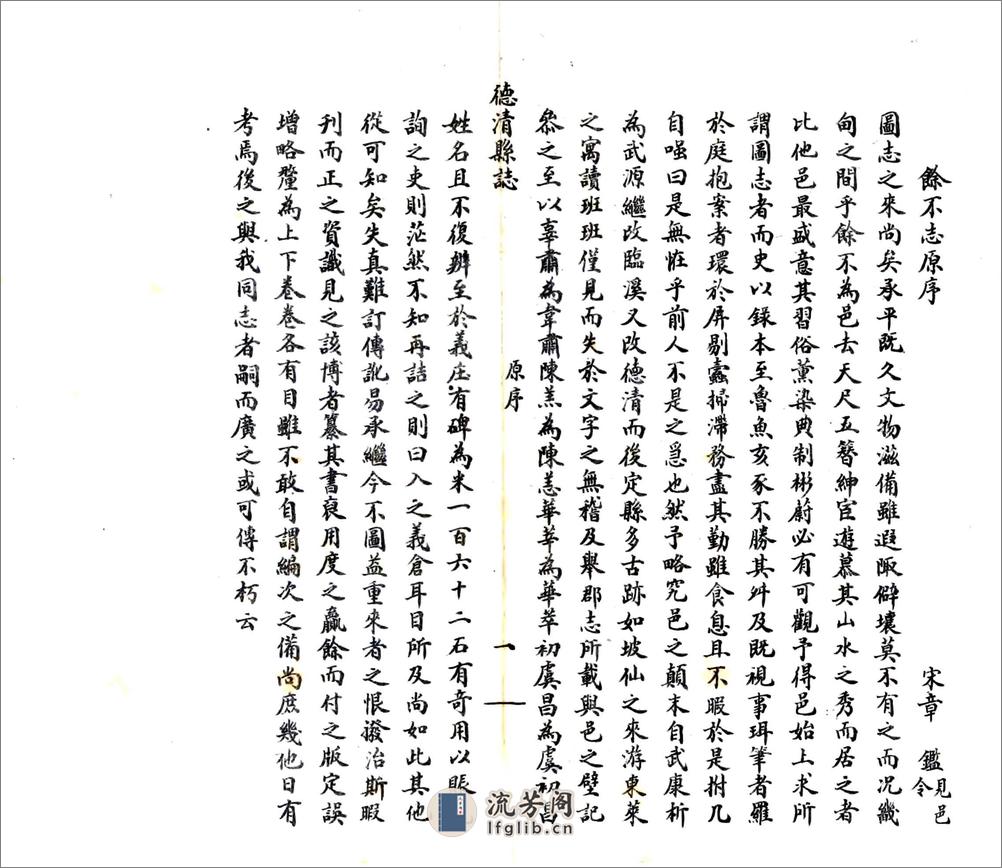 餘不志原序
宋章　鑑見邑令
圖志之來尚矣承平既久文物滋備雖遐陬僻壤莫不有之而况畿
甸之間乎餘不為邑去天尺五簪紳宦遊慕其山水之秀而居之者
比他邑最盛意其習俗薰染典制彬蔚必有可觀予得邑始上求所
謂圖志者而史以錄本至魯魚亥豕不勝其舛及既視事珥筆者羅
於庭抱案者環於屏剔蠹掃滯務盡其勤雖食息且不暇於是拊几
自嗤曰是無恠乎前人不是之爲也然予略究邑之顛末自武康析
為武源繼改臨溪又改德清而後定縣多古跡如坡仙之來游東萊
之寓讀班班僅見而失於文字之無稽及舉郡志所載與邑之壁記
叅之至以辜肅為韋肅陳羔為陳恙華華為華萃初虞昌為虞初昌
德清縣誌
原序
一
姓名且不復辨至於義庄有碑為米一百六十二石有奇用以賑
詢之吏則茫然不知再詰之則曰入之義倉耳目所及尚如此其他
從可知矣失真難訂傳訛易承繼今不圖益重來者之恨撥治斯暇
刊而正之資識見之該博者纂其書裒用度之贏餘而付之版定誤
增略釐為上下卷卷各有目雖不敢自謂編次之備尚庶幾他日有
考焉後之與我同志者嗣而廣之或可傳不朽云
流芳阁
lfglib.cn